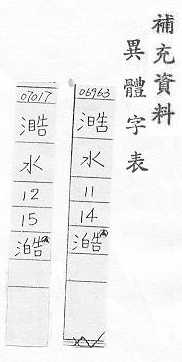 補充資料
異體字表
06963
水
11
14
澔
07017
澔
水
12
15
澔